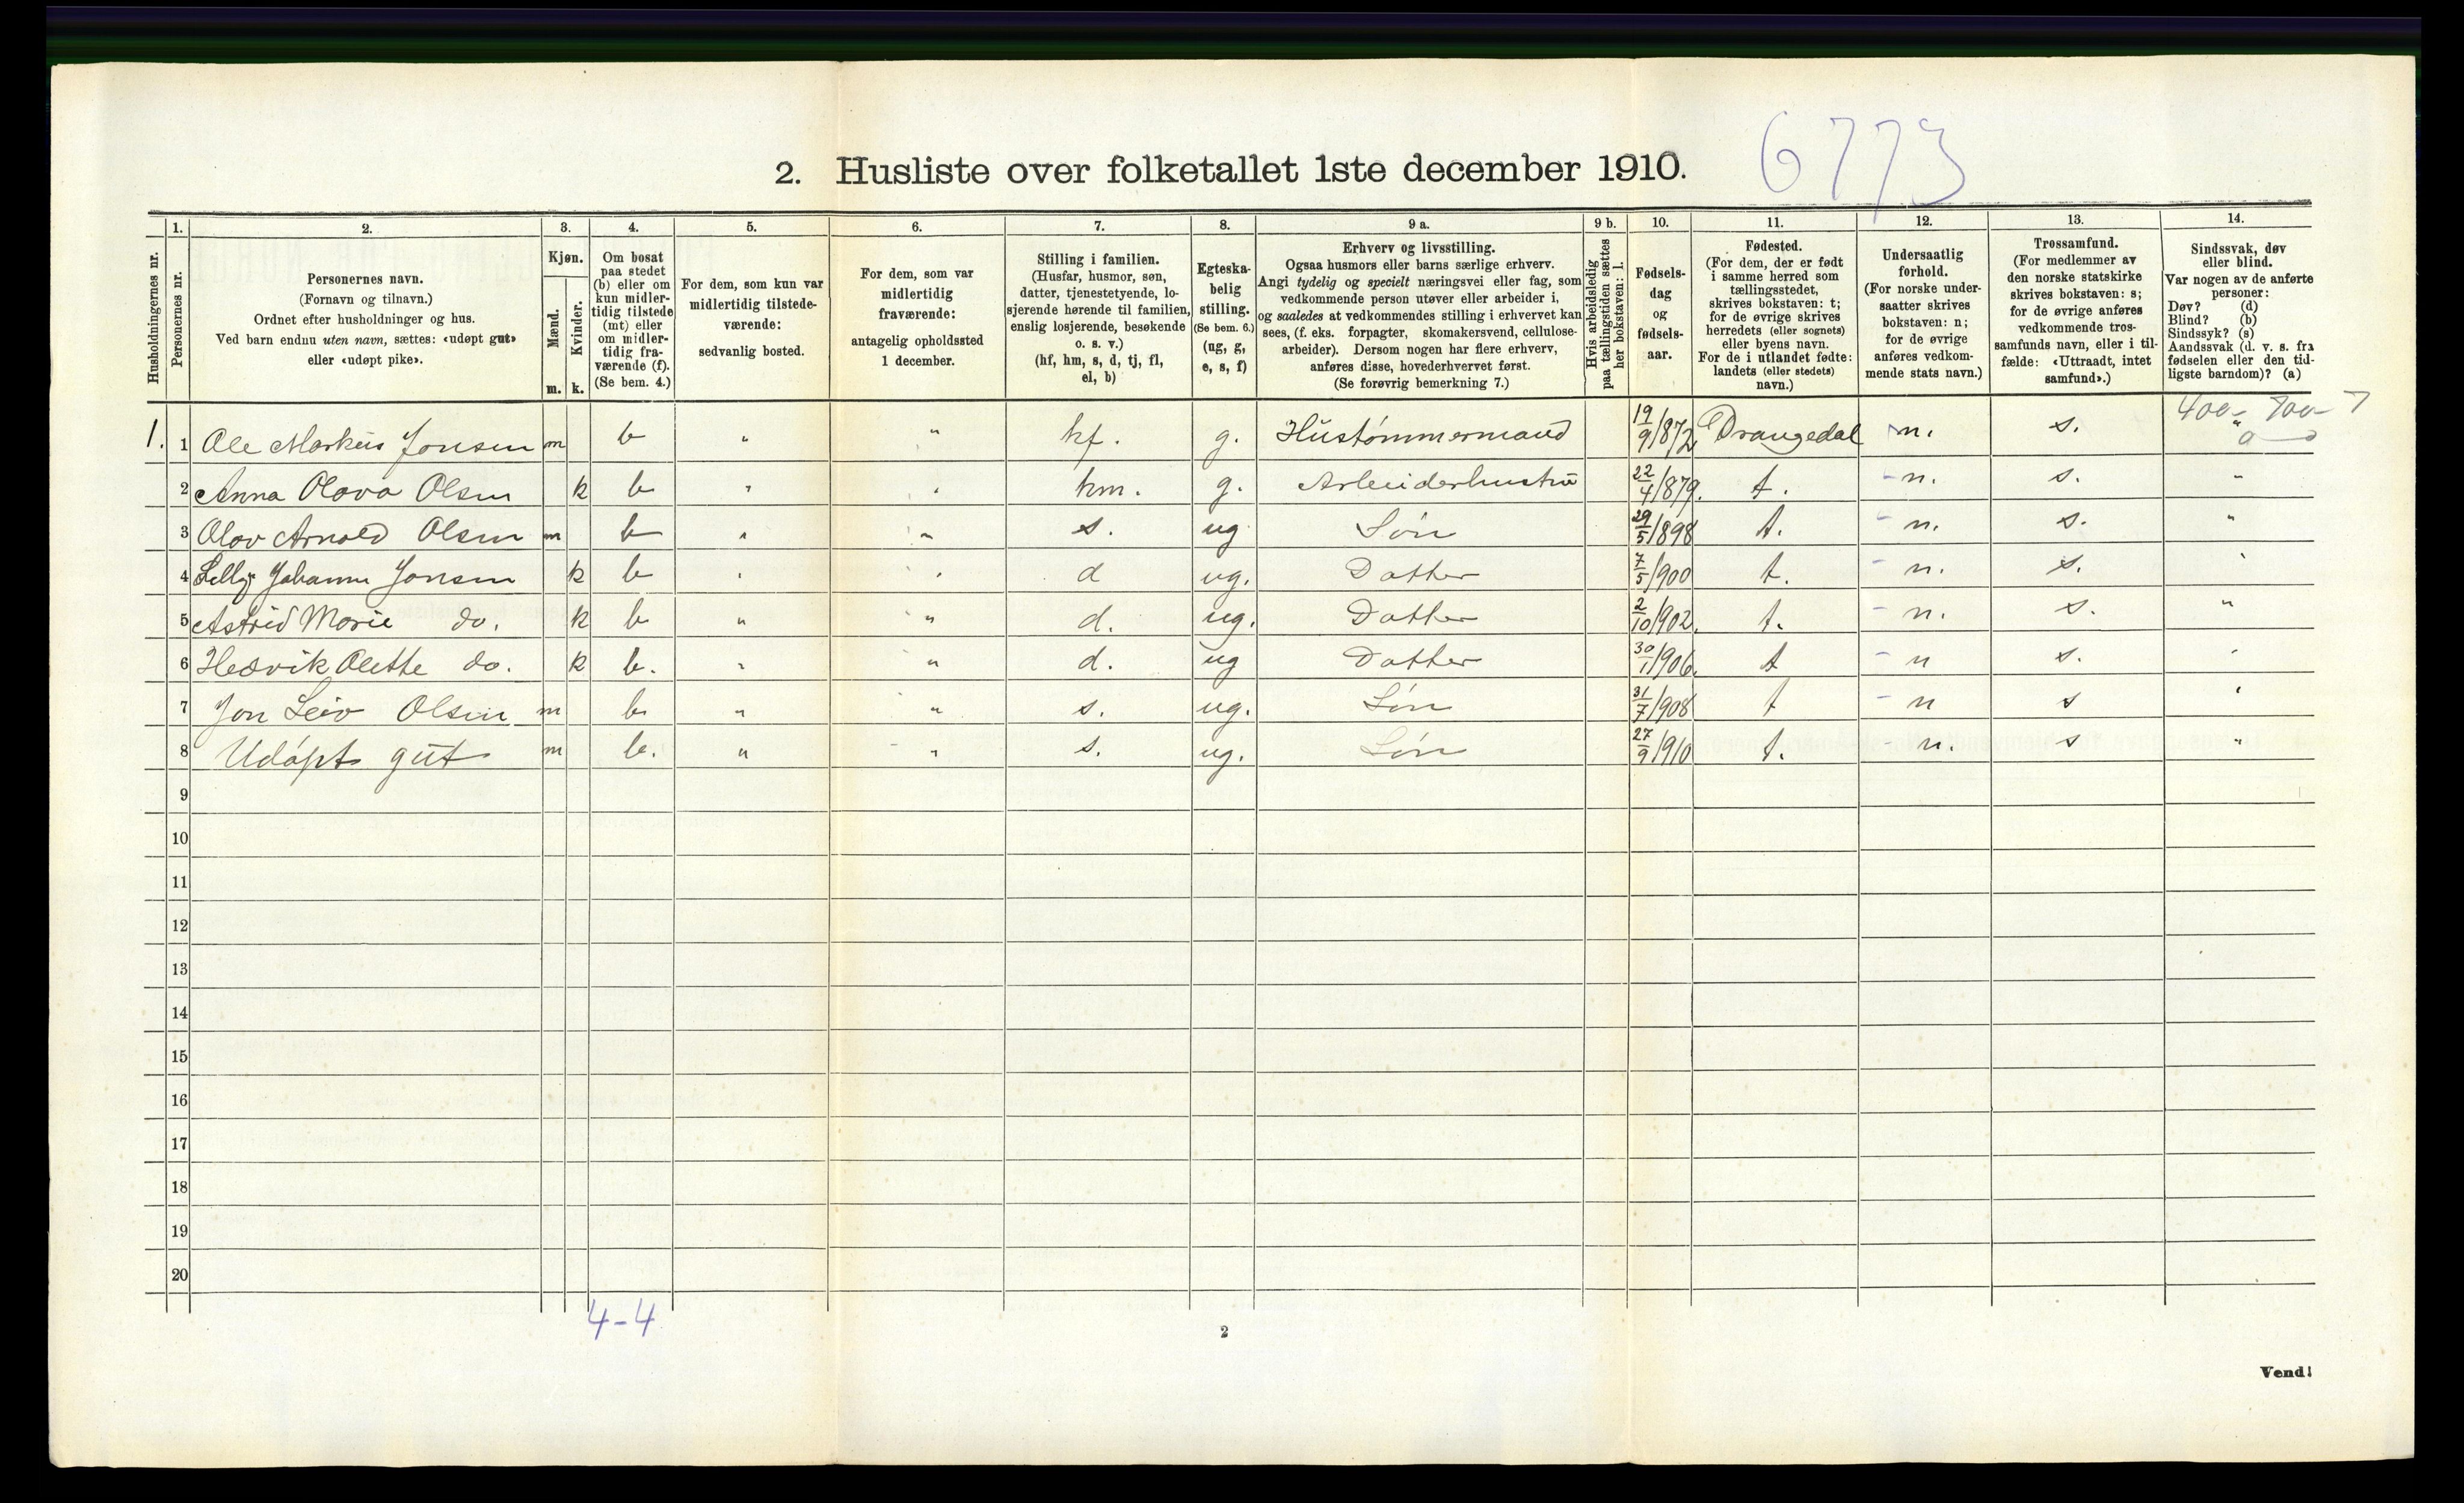 6773
2. Husliste over folketallet 1ste december 1910.
1. 2. 3. 4. 5. 6. 7. 8. 9 a. 9 b. 10. 11. 12. 13. 14.
Husholdningernes nr.
Personernes nr.
Personernes navn.
(Fornavn og tilnavn.)
Ordnet efter husholdninger og hus.
Ved barn endnu uten navn, sættes: «udøpt gut»
eller «udøpt pike».
Kjøn.
Mænd.
Kvinder.
m. k.
Om bosat
paa stedet
(b) eller om
kun midler-
tidig tilstede
(mt) eller
om midler-
tidig fra-
værende (f).
(Se bem. 4.)
For dem, som kun var
midlertidig tilstede-
værende:
sedvanlig bosted.
For dem, som var
midlertidig
fraværende:
antagelig opholdssted
1 december.
Stilling i familien.
(Husfar, husmor, søn,
datter, tjenestetyende, lo-
sjerende hørende til familien,
enslig losjerende, besøkende
o. s. v.)
(hf, hm, s, d, tj, fl,
el, b)
Egteska-
belig
stilling.
(Se bem. 6.)
(ug, g,
e, s, f)
Erhverv og livsstilling.
Ogsaa husmors eller barns særlige erhverv.
Angi tydelig og specielt næringsvei eller fag, som
vedkommende person utøver eller arbeider i,
og saaledes at vedkommendes stilling i erhvervet kan
sees, (f. eks. forpagter, skomakersvend, cellulose-
arbeider). Dersom nogen har flere erhverv,
anføres disse, hovederhvervet først.
(Se forøvrig bemerkning 7.)
Hvis arbeidsledig
paa tællingstiden sættes
her bokstaven: l.
Fødsels-
dag
og
fødsels-
aar.
Fødested.
(For dem, der er født
i samme herred som
tællingsstedet,
skrives bokstaven: t;
for de øvrige skrives
herredets (eller sognets)
eller byens navn.
For de i utlandet fødte:
landets (eller stedets)
navn.)
Undersaatlig
forhold.
(For norske under-
saatter skrives
bokstaven: n;
for de øvrige
anføres vedkom-
mende stats navn.)
Trossamfund.
(For medlemmer av
den norske statskirke
skrives bokstaven: s;
for de øvrige anføres
vedkommende tros-
samfunds navn, eller i til-
fælde: «Uttraadt, intet
samfund».)
Sindssvak, døv
eller blind.
Var nogen av de anførte
personer:
Døv? (d)
Blind? (b)
Sindssyk? (s)
Aandssvak (d. v. s. fra
fødselen eller den tid-
ligste barndom)? (a)
400- 700-7
1. 1 Ole Markus Jonsen m b " " hf. g. Hustømmermand 19/9/872 Drangedal n. s. "
2 Anna Olava Olsen k b " " hm. g. Arbeiderhustru 22/4/879. t. n. s. "
3 Olav Arnold Olsen m b " " s. ug Søn 29/5/898 t. n. s. "
4 Lelly Johanne Jonsen k b " " d ug. Datter 7/5/900 t. n. s. "
5 Astrid Marie do. k b " " d. ug. Datter 2/10/902. t. n. s. "
6 Hedvik Olette do. k b. " " d. ug Datter 30/1/906. t n s. "
7 Jon Leiv Olsen m b " " s. ug. Søn 31/7/908 t n s "
8 Udøpt gut m b. " " s. ug. Søn 27/9/910 t. n. s "
9
10
11
12
13
14
15
16
17
18
19
20
4-4
2
Vend!